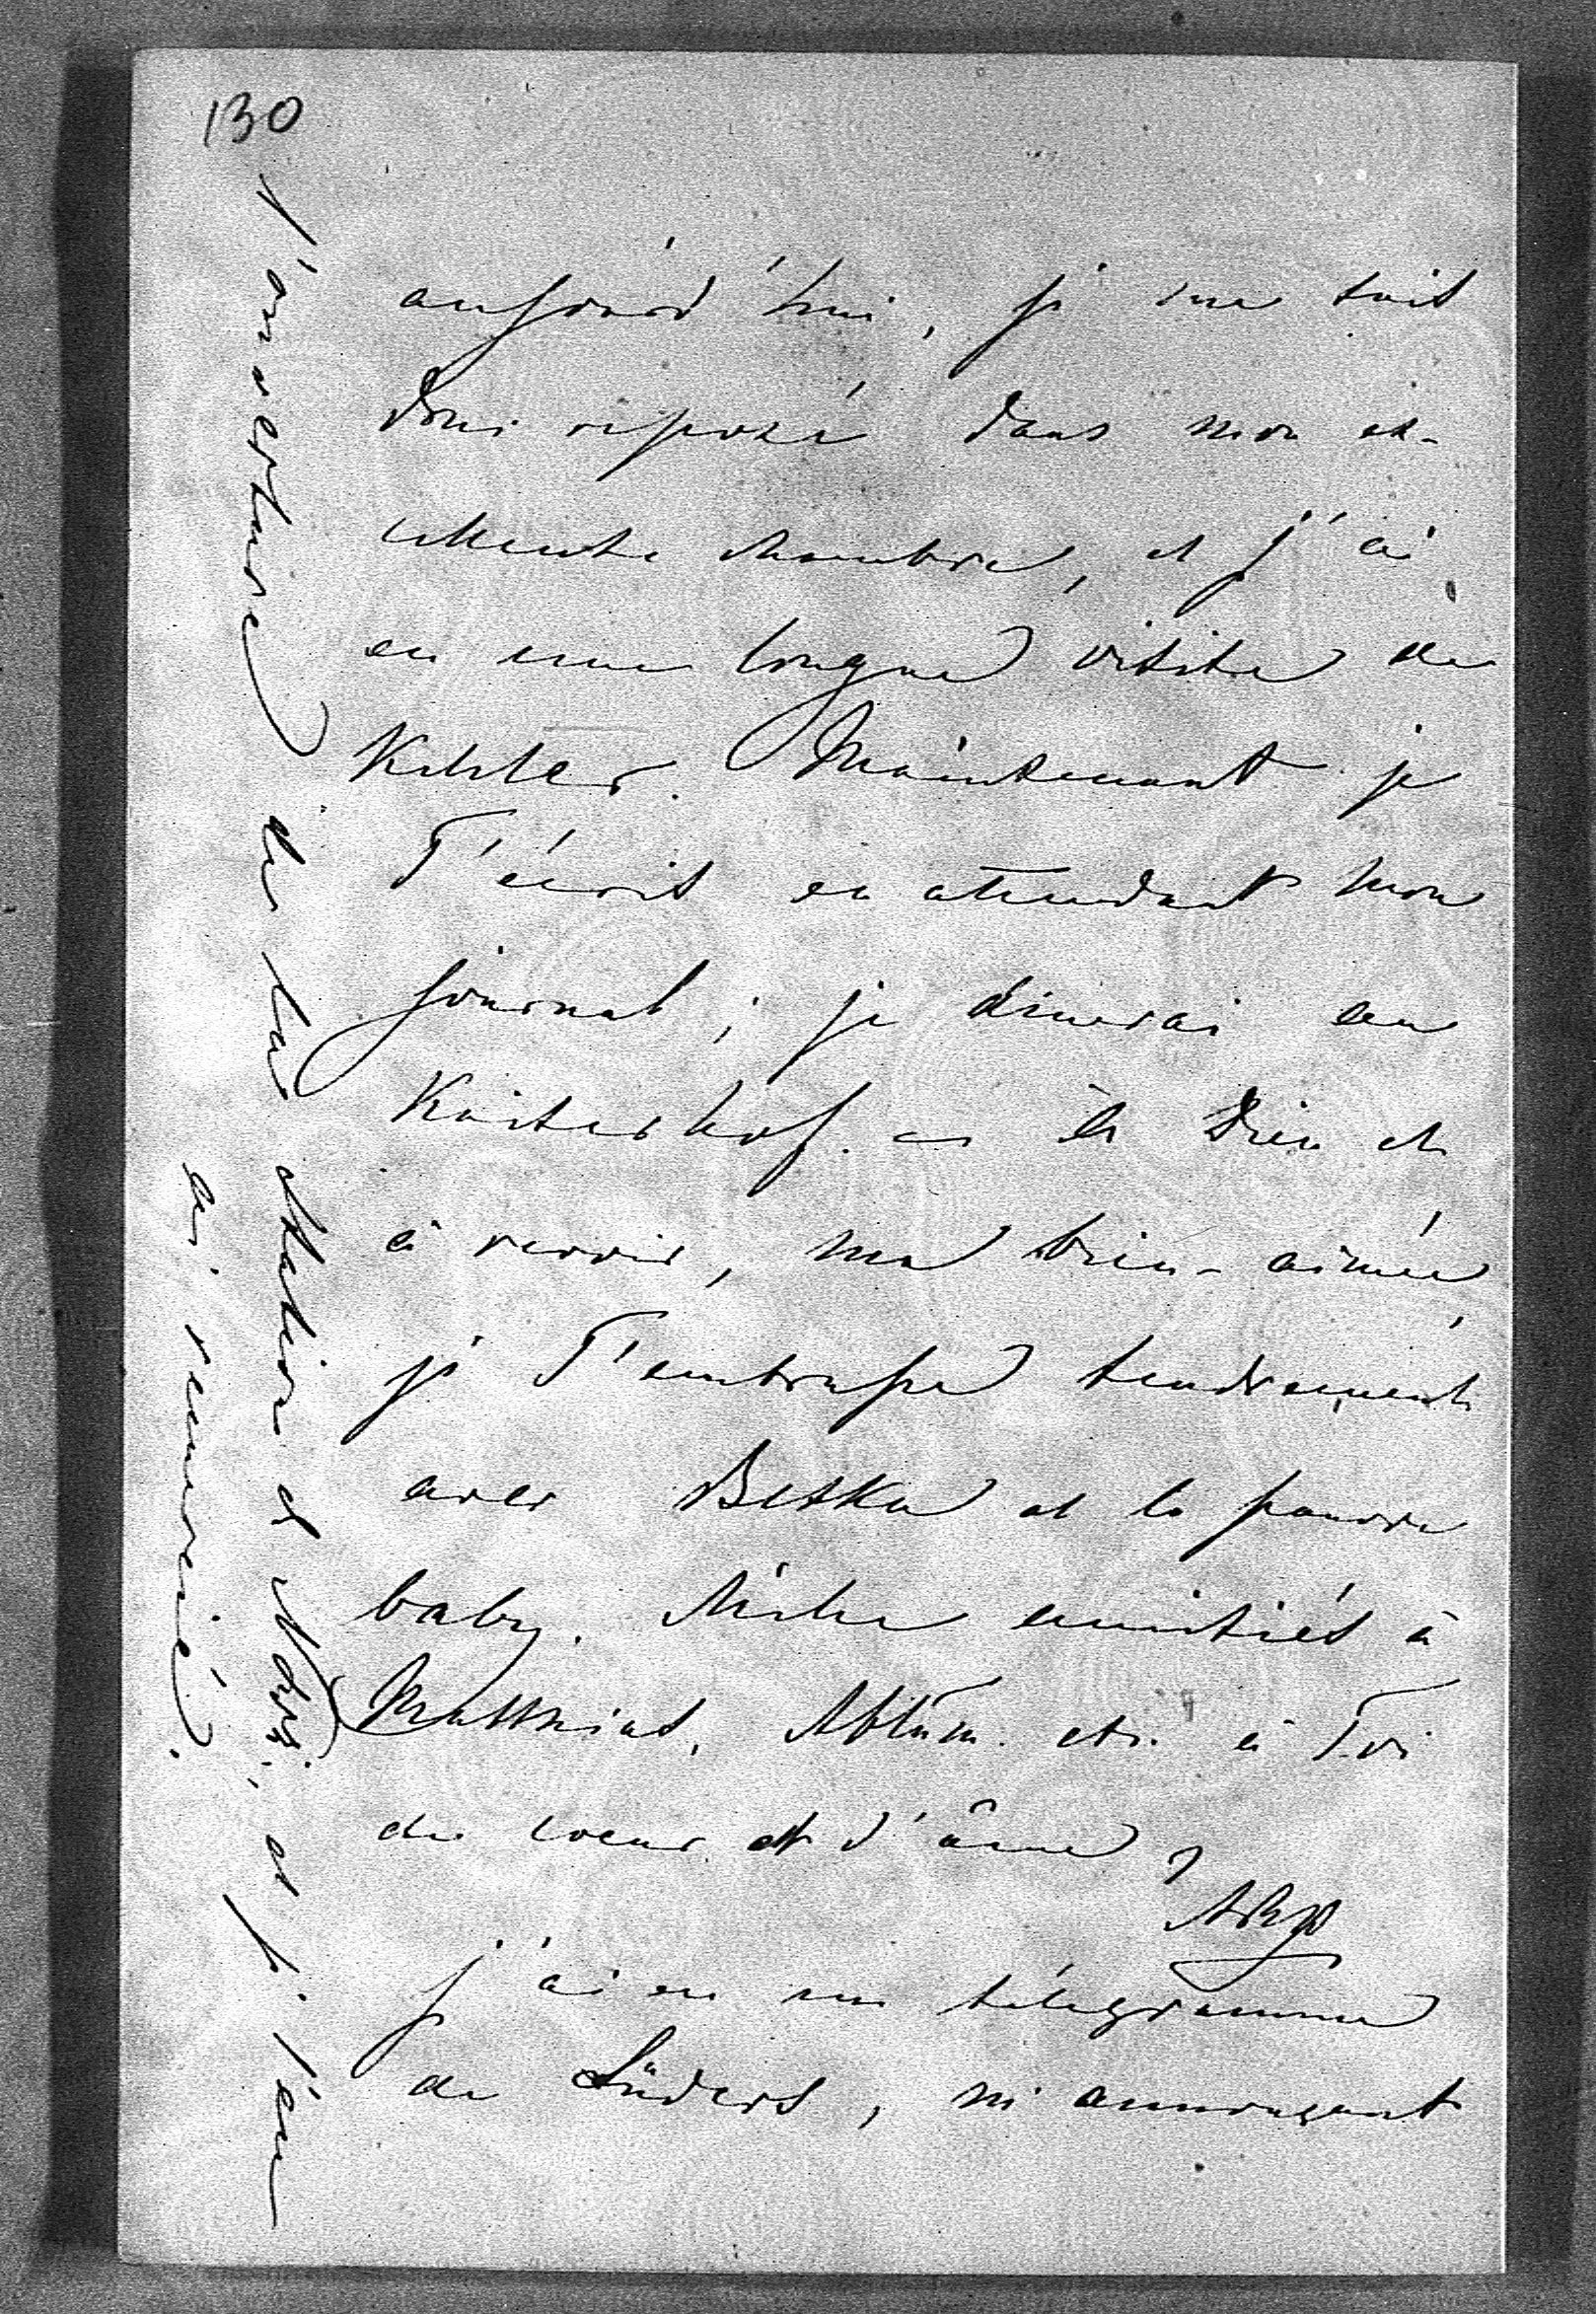 130
aujourd'hui, je me suis
donc reposé dans mon ex-
cellente chambre, et j'ai
eu une longue visite de
Köhler. Maintenant je
T'écris en attendant mon
journal; je dînerai au
Kaiserhof. — à Dieu et
à revoir, ma bien-aimée,
je T'embrasse tendrement
avec Betka et le pauvre
baby. Mille amitiés à
Matthias, etc. à Toi
de coeur et d'âme,
j'ai eu un télégramme
de Lüders, m'annonçant
l'ouverture de la station de Nork, et je l'en
ai remercié.